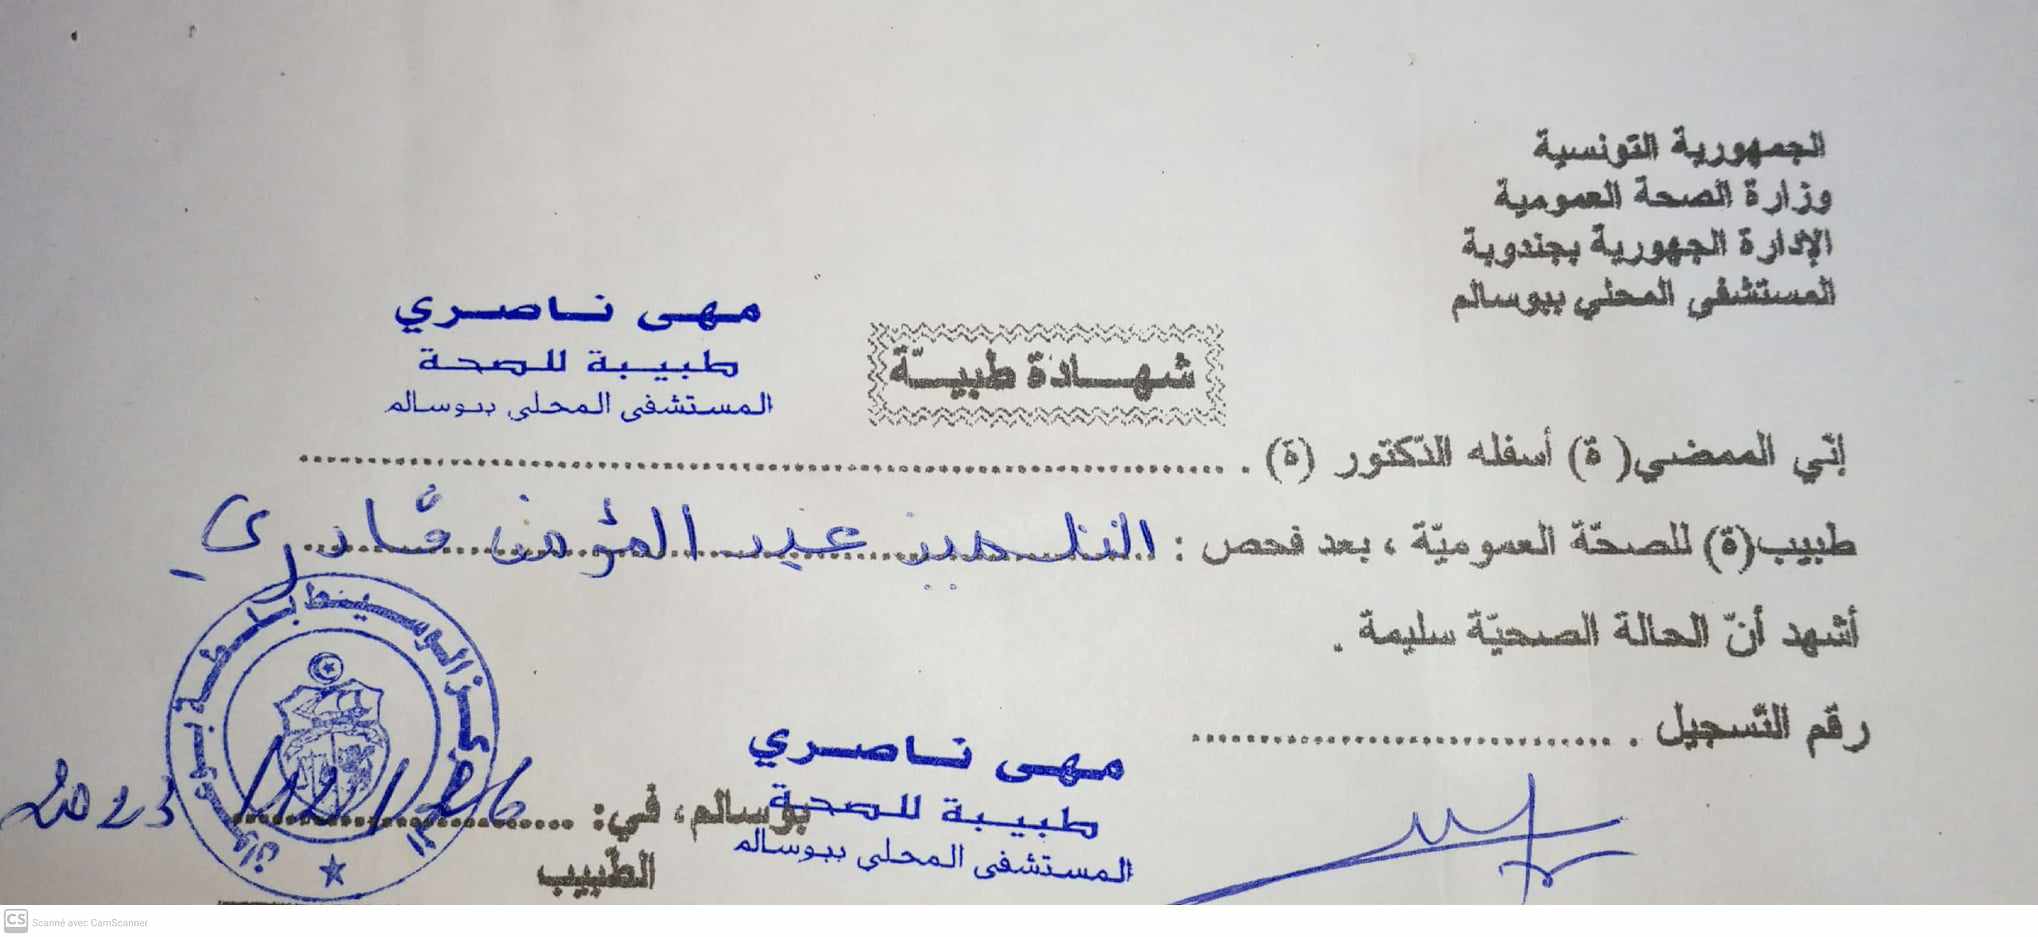 الجمهورية التونسية
وزارة الصحة العمومية
الإدارة الجهورية بجندوبة
المستشفى المحلي ببوسالم
مهى ناصري
طبيبة للصحة
المستشفى المحلي ببوسالم
شهادة طبيّة
إنّي الممضي( ة) أسفله الدّكتور (ة) .
طبيب(ة) للصحّة العموميّة ، بعد فحص : التلميذ عبد المؤمن قادري
أشهد أنّ الحالة الصحيّة سليمة .
رقم التّسجيل .
مهى ناصري
طبيبة للصحة
المستشفى المحلي ببوسالم
بوسالم، في: 26/12/2023
الطّبيب
CS Scanné avec CamScanner